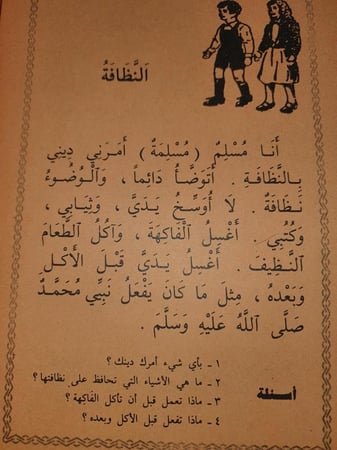 اَلنَّظَافَةُ
أَنَا مُسْلِمٌ (مُسْلِمَةٌ) أَمَرَنِي دِينِي
بِالنَّظَافَةِ . أَتَوَضَّأُ دَائِماً ، وَالْوُضُوءُ
نَظَافَةٌ . لَا أُوَسِّخُ يَدَيَّ ، وَثِيَابِي ،
وَكُتُبِي . أَغْسِلُ الْفَاكِهَةَ ، وَآكُلُ الطَّعَامَ
النَّظِيفَ . أَغْسِلُ يَدَيَّ قَبْلَ الْأَكْلِ
وَبَعْدَهُ ، مِثْلَ مَا كَانَ يَفْعَلُ نَبِيِّي مُحَمَّدٌ
صَلَّى اللَّهُ عَلَيْهِ وَسَلَّمَ .
أسئلة
١ - بأي شيء أمرك دينك ؟
٢ - ما هي الأشياء التي تحافظ على نظافتها ؟
٣ - ماذا تعمل قبل أن تأكل الفاكهة ؟
٤ - ماذا تفعل قبل الأكل وبعده ؟